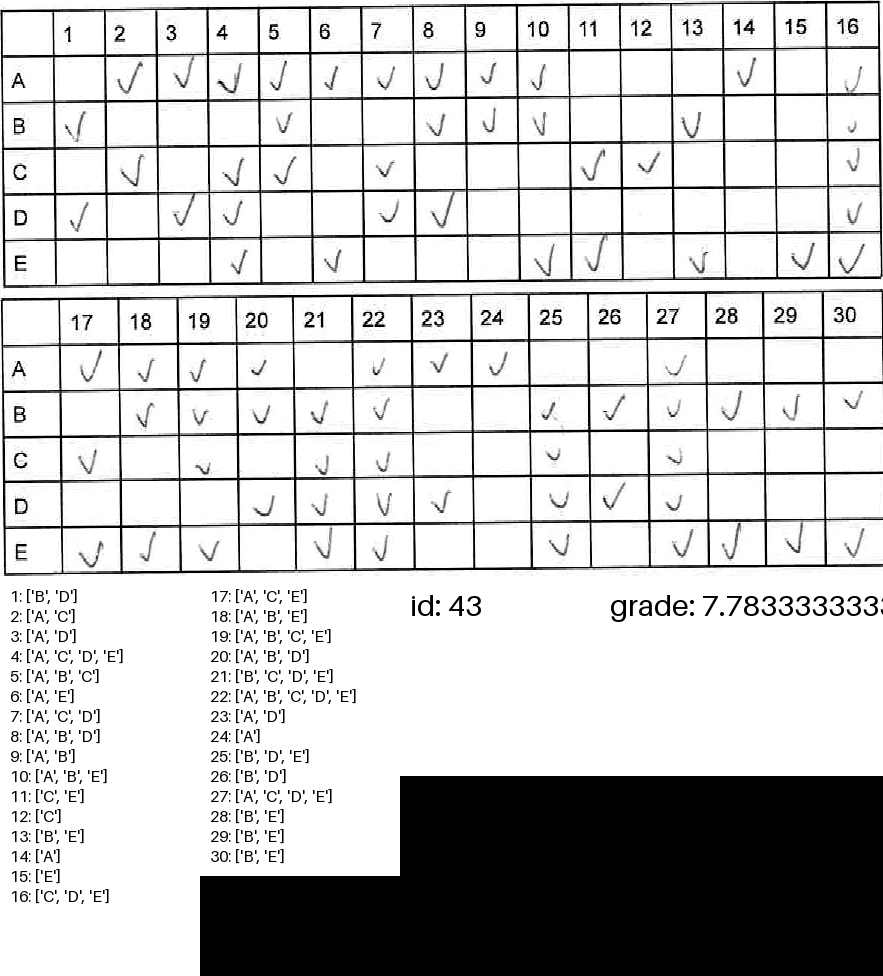 1 2 3 4 5 6 7 8 9 10 11 12 13 14 15 16
A ✓ ✓ ✓ ✓ ✓ ✓ ✓ ✓ ✓ ✓ ✓
B ✓ ✓ ✓ ✓ ✓ ✓ ✓
C ✓ ✓ ✓ ✓ ✓ ✓ ✓
D ✓ ✓ ✓ ✓ ✓ ✓
E ✓ ✓ ✓ ✓ ✓ ✓ ✓
17 18 19 20 21 22 23 24 25 26 27 28 29 30
A ✓ ✓ ✓ ✓ ✓ ✓ ✓ ✓
B ✓ ✓ ✓ ✓ ✓ ✓ ✓ ✓ ✓ ✓ ✓
C ✓ ✓ ✓ ✓ ✓ ✓
D ✓ ✓ ✓ ✓ ✓ ✓ ✓
E ✓ ✓ ✓ ✓ ✓ ✓ ✓ ✓ ✓ ✓
1: ['B', 'D']
2: ['A', 'C']
3: ['A', 'D']
4: ['A', 'C', 'D', 'E']
5: ['A', 'B', 'C']
6: ['A', 'E']
7: ['A', 'C', 'D']
8: ['A', 'B', 'D']
9: ['A', 'B']
10: ['A', 'B', 'E']
11: ['C', 'E']
12: ['C']
13: ['B', 'E']
14: ['A']
15: ['E']
16: ['C', 'D', 'E']
17: ['A', 'C', 'E']
18: ['A', 'B', 'E']
19: ['A', 'B', 'C', 'E']
20: ['A', 'B', 'D']
21: ['B', 'C', 'D', 'E']
22: ['A', 'B', 'C', 'D', 'E']
23: ['A', 'D']
24: ['A']
25: ['B', 'D', 'E']
26: ['B', 'D']
27: ['A', 'C', 'D', 'E']
28: ['B', 'E']
29: ['B', 'E']
30: ['B', 'E']
id: 43
grade: 7.7833333333